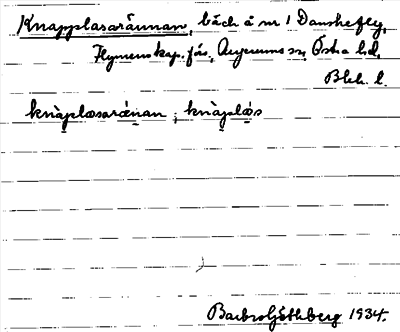 Knapplasarännan, bäck å nr 1 Danskefly,
Hymenskap. fös, Augerums sn, Östra hd,
Blek. l.
knàplasaræ̀nan ; knàplǻs
Barbro Göthberg 1934.